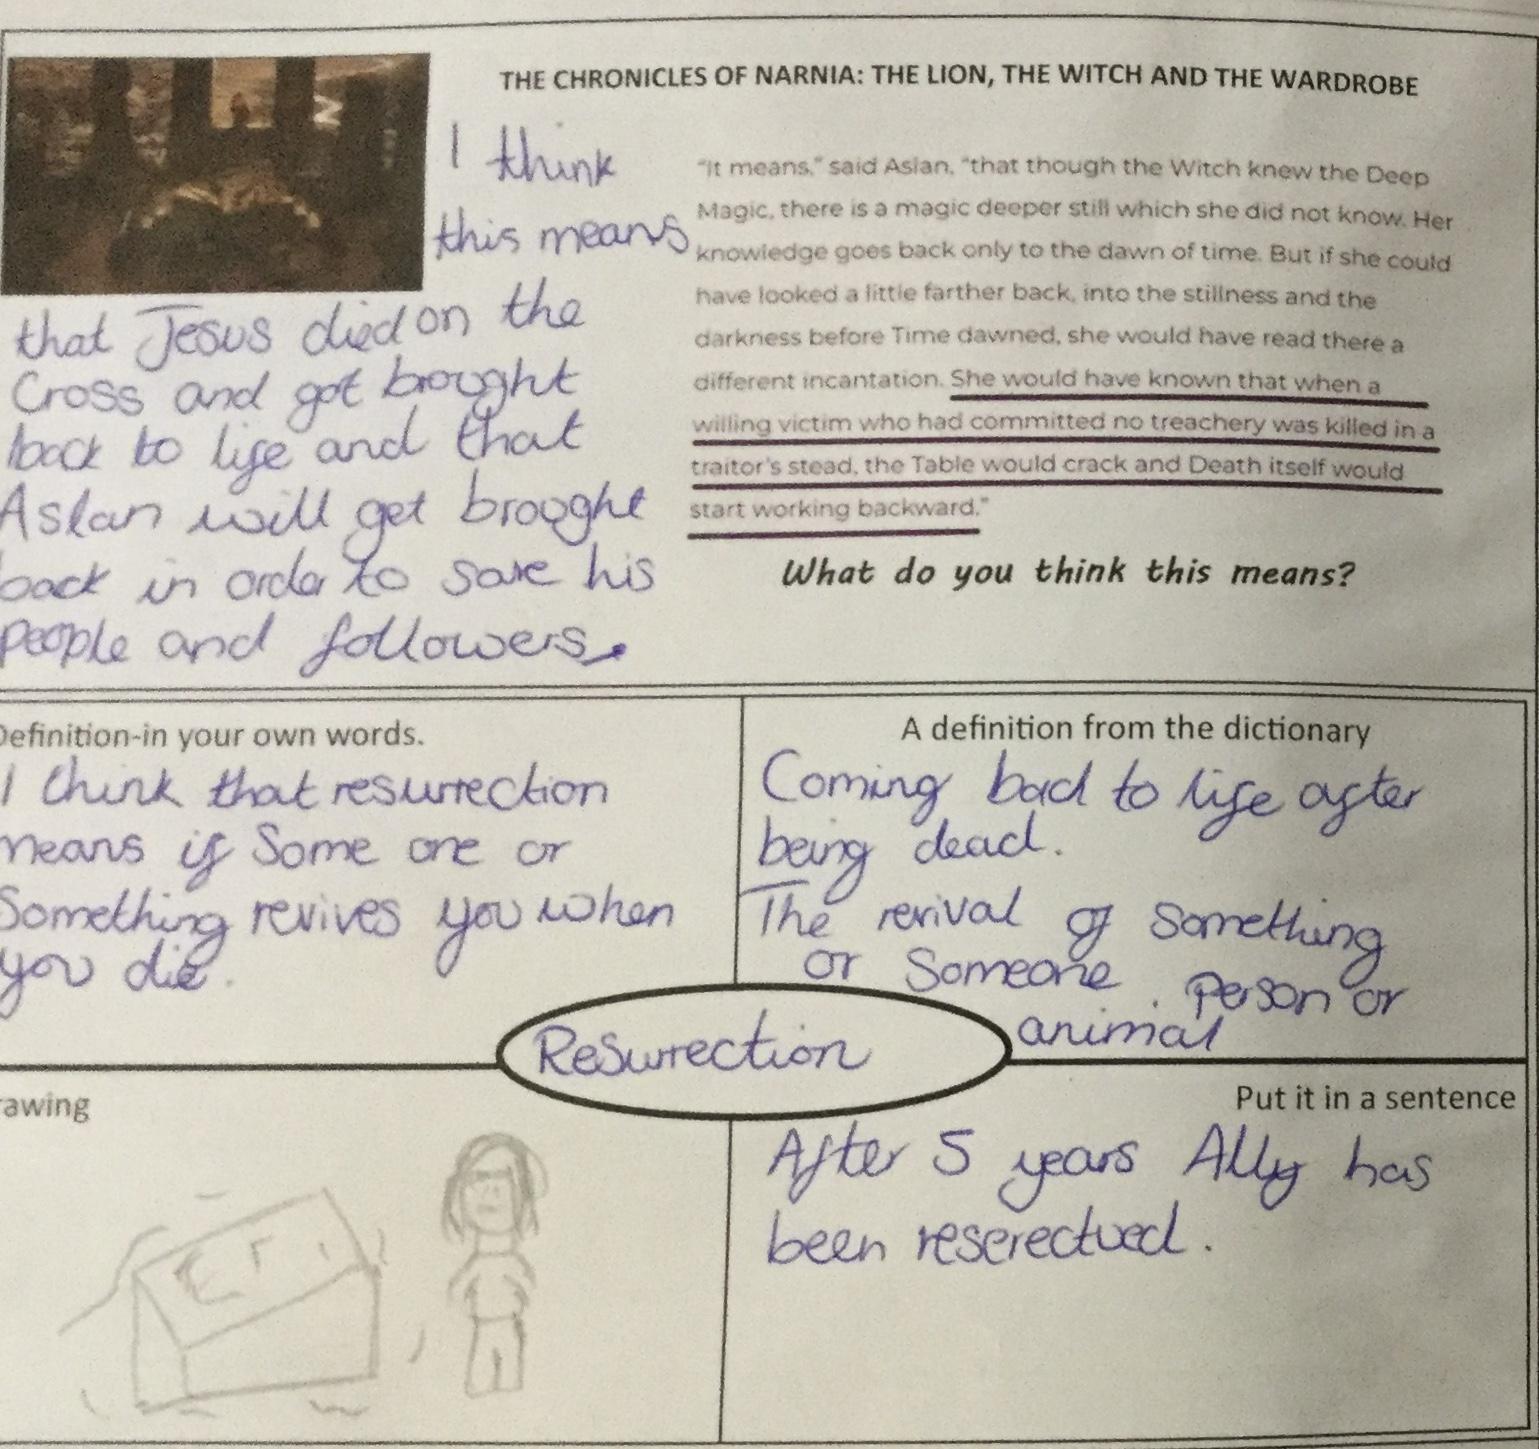 THE CHRONICLES OF NARNIA: THE LION, THE WITCH AND THE WARDROBE
"It means," said Aslan, "that though the Witch knew the Deep
Magic, there is a magic deeper still which she did not know. Her
knowledge goes back only to the dawn of time. But if she could
have looked a little farther back, into the stillness and the
darkness before Time dawned, she would have read there a
different incantation. She would have known that when a
willing victim who had committed no treachery was killed in a
traitor's stead, the Table would crack and Death itself would
start working backward."
What do you think this means?
I think
this means
that Jesus died on the
Cross and got brought
back to life and that
Aslan will get brought
back in order to save his
people and followers.
Definition-in your own words.
I think that resurrection
means if Some one or
Something revives you when
you die.
A definition from the dictionary
Coming back to life after
being dead.
The revival of Something
or Someone. person or
animal
Resurrection
rawing
Put it in a sentence
After 5 years Ally has
been reserectued.